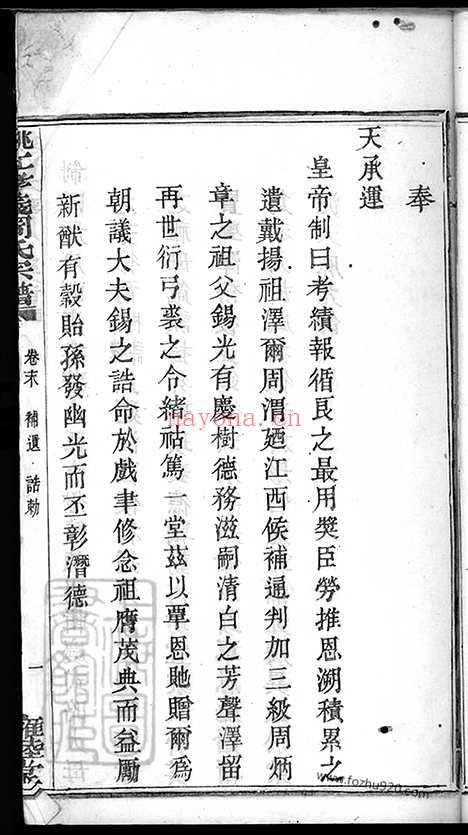 奉
天承運
皇帝制曰考績報循良之最用奬臣勞推恩溯積累之
遺載揚祖澤爾周渭廼江西候補通判加三級周炳
章之祖父錫光有慶樹德務滋嗣清白之芳聲澤留
再世衍弓裘之令緒祜篤一堂茲以覃恩貤贈爾爲
朝議大夫錫之誥命於戲聿修念祖膺茂典而益勵
新猷有穀貽孫發幽光而丕彰潛德
氏宗譜
卷末 補遺 誥勅
一
nayona.cn
www.fozhu920.com